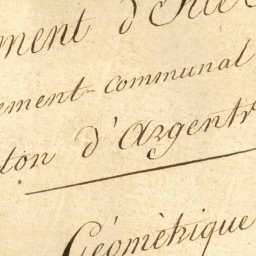 ment d'Ille
ement-communal
ton d'Argentr
Géomètrique